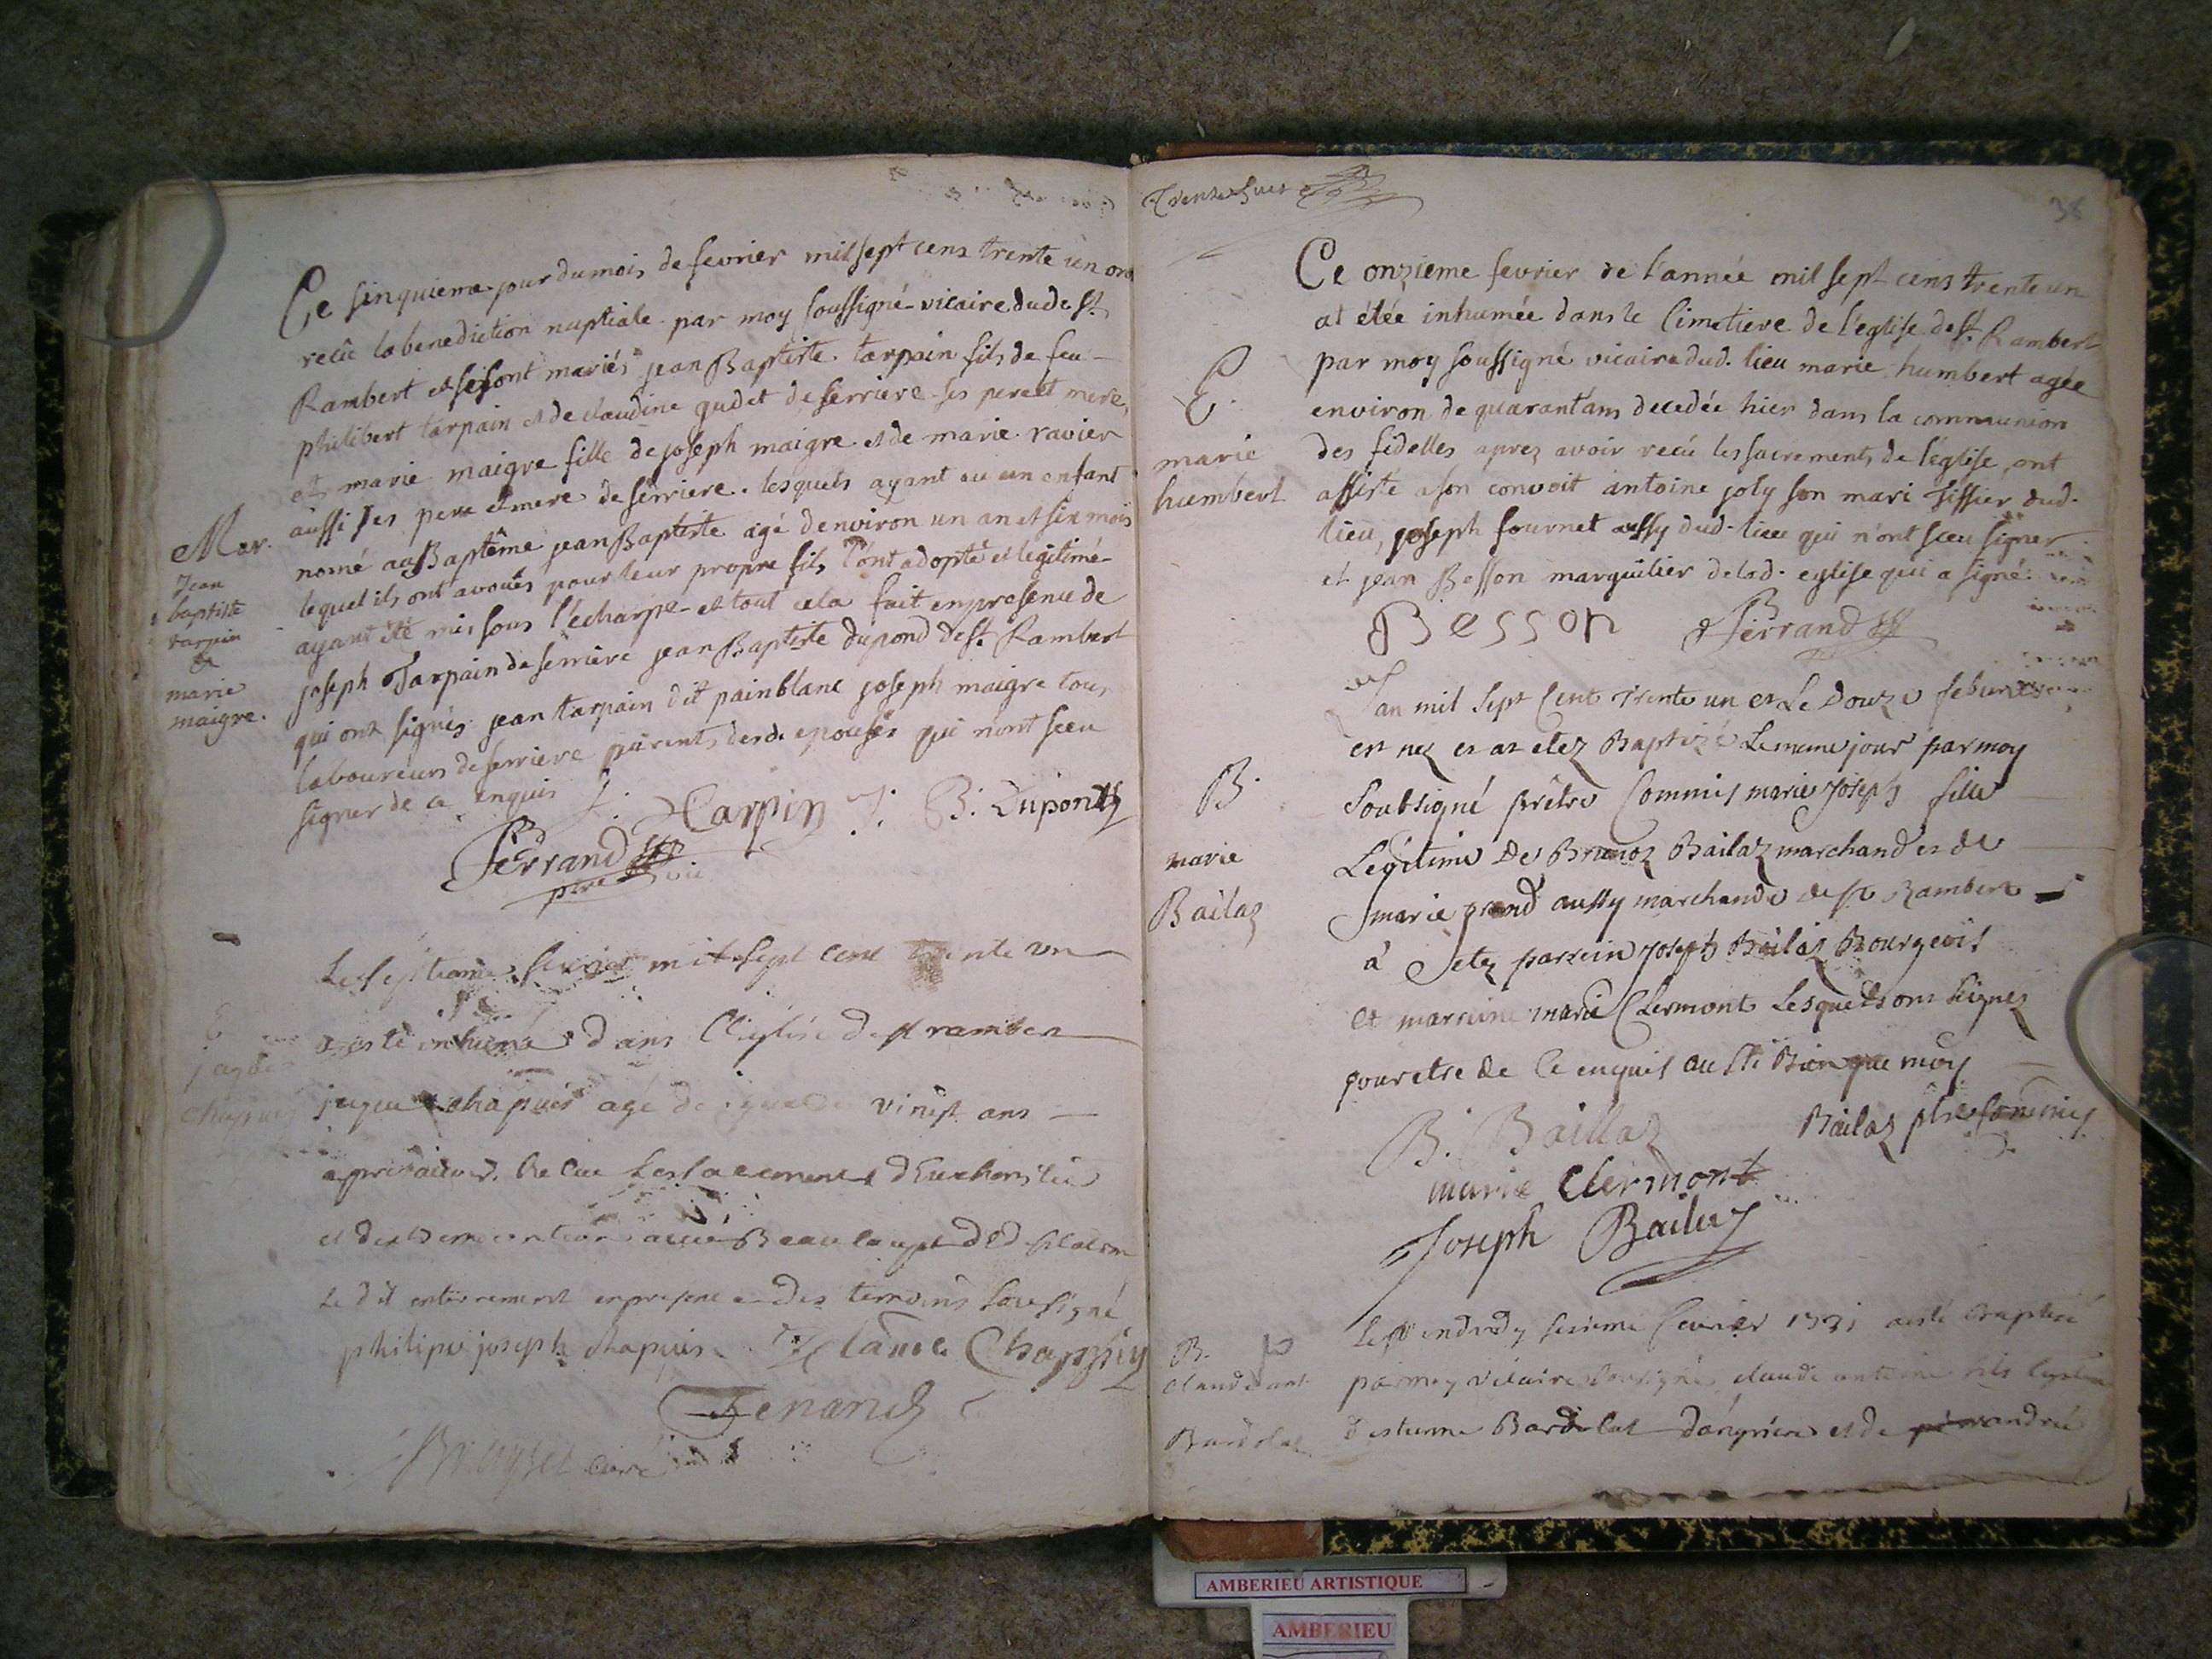 Ce sinquieme jour du mois de fevrier mil sept cens trente un ont
recû la benediction nuptiale par moy soussigné vicaire dud. St.
Rambert et se sont mariés jean Baptiste tarpain fils de feu
philibert tarpain et de claudine gudet de serriere ses pere et mere,
et marie maigre fille de joseph maigre et de marie ravier
aussi ses pere et mere de serriere. lesquels ayant eu un enfant
nomé au Baptême jean Baptiste agé d'environ un an et six mois
lequel ils ont avoués pour leur propre fils l'ont adopté et legitimé
ayant été mis sous l'echarpe et tout cela fait en presence de
joseph Tarpain de serriere jean Baptiste dupond de St. Rambert
qui ont signés jean tarpain dit painblanc joseph maigre tous
laboureurs de serriere parents desd. epouses qui n'ont sceu
signer de ce enquis
Mar.
Jean
baptiste
tarpain
&
marie
maigre.
J. Tarpin J. B. Dupont
Ferrand
ptre vic
Le septieme fevrier mil sept cent trente un
a esté inhumé dans l'eglise de st rambert
chapuis agé de vingt ans
apres avoir receu les sacrements d'Eucharistie
et
le dit enterrement en presence des temoins sousigné
philipe joseph chapuis Chappuy
Ferrand
curé
Trente huit
38
Ce onzieme fevrier de l'année mil sept cens trente un
at étée inhumée dans le Cimetiere de l'eglise de St. Rambert
par moy soussigné vicaire dud. lieu marie humbert agée
environ de quarant'ans decedée hier dans la communion
des fidelles aprez avoir recû les sacrements de l'église, ont
assisté a son convoit antoine joly son mari Tissier dud.
lieu, joseph fournet aussy dud. lieu qui n'ont sceu signer
et jean Besson marguilier de lad. eglise qui a signé
E.
marie
humbert
Besson Ferrand
L'an mil sept Cent trente un et Le Douze
est nez et at etez Baptizé Le meme jour par moy
Soubsigné prêtre Commis marie Joseph fille
Legitime De Bailaz marchand et de
marie grand aussy marchande de st Rambert
à etez parrein Joseph Bailaz Bourgeois
et marreine marie Clermont Lesquels ont signez
pour etre de Ce enquis aussi Bien que moy
B.
marie
Bailaz
B. Baillaz Bailaz ptre Commis
marie Clermont
Joseph Bailaz
Le vendredy fevrier 1731 a esté baptisé
par moy vicaire sousigné claude antoine fils
d'estienne Bardolat d'angriere et de andrée
B.
claude ant.
Bardolat
AMBERIEU ARTISTIQUE
AMBERIEU